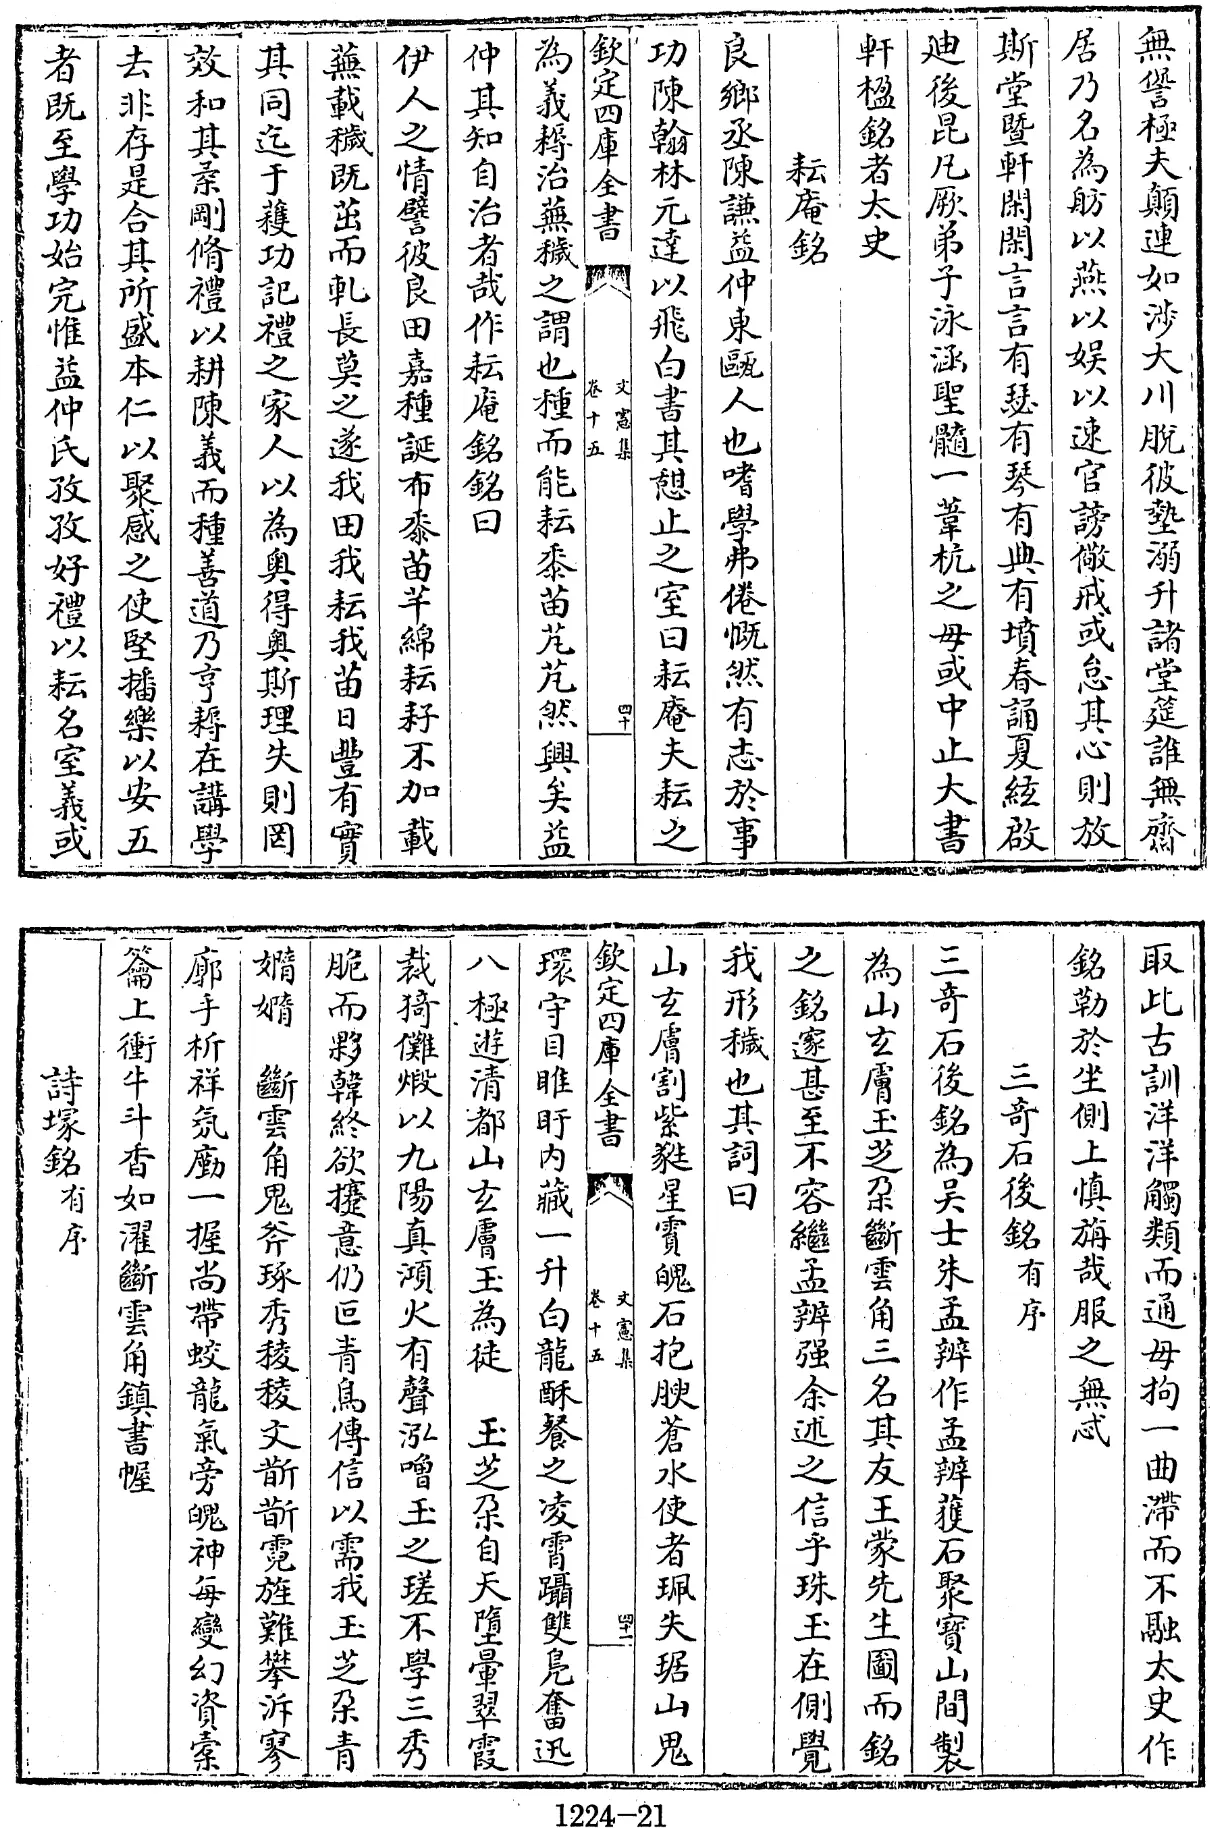 無譽極夫顛連如涉大川脫彼墊溺升諸堂筵誰無齋
居乃名為舫以燕以娛以速官謗儆戒或怠其心則放
斯堂暨軒閑閑言言有瑟有琴有典有墳春誦夏絃啟
廸後昆凡厥弟子泳涵聖髓一葦杭之毋或中止大書
軒楹銘者太史
耘庵銘
良鄉丞陳謙益仲東甌人也嗜學弗倦慨然有志於事
功陳翰林元達以飛白書其憩止之室曰耘庵夫耘之
欽定四庫全書
文憲集
卷十五
四十
為義耨治蕪穢之謂也種而能耘黍苗芃芃然興矣益
仲其知自治者哉作耘庵銘銘曰
伊人之情譬彼良田嘉種誕布黍苗芊綿耘耔不加載
蕪載穢既茁而乹長莫之遂我田我耘我苗日豐有實
其同迄于穫功記禮之家人以為奧得奧斯理失則罔
效和其柔剛脩禮以耕陳義而種善道乃亨耨在講學
去非存是合其所盛本仁以聚感之使堅播樂以安五
者既至學功始完惟益仲氏孜孜好禮以耘名室義或
取此古訓洋洋觸類而通毋拘一曲滯而不融太史作
銘勒於坐側上慎旃哉服之無忒
三奇石後銘有序
三奇石後銘為吳士朱孟辨作孟辨獲石聚寶山間製
為山玄膚玉芝朶斷雲角三名其友王蒙先生圖而銘
之銘邃甚至不容繼孟辨强余述之信乎珠玉在側覺
我形穢也其詞曰
山玄膚割紫㲋星霣魄石抱腴蒼水使者珮失琚山鬼
欽定四庫全書
文憲集
卷十五
四十一
環守目睢盱內藏一升白龍酥餐之凌霄躡雙鳧奮迅
八極遊清都山玄膚玉為徒 玉芝朶自天墮暈翠霞
裁猗儺煅以九陽真澒火有聲泓噌玉之瑳不學三秀
脆而夥韓終欲攓意仍叵青鳥傳信以需我玉芝朶青
媠媠 斷雲角鬼斧琢秀稜稜文斮斮霓旌難攀泝寥
廓手析祥氛勔一握尚帶蛟龍氣旁魄神每變幻資橐
籥上衝牛斗杳如濯斷雲角鎮書幄
詩塚銘有序
1224-21